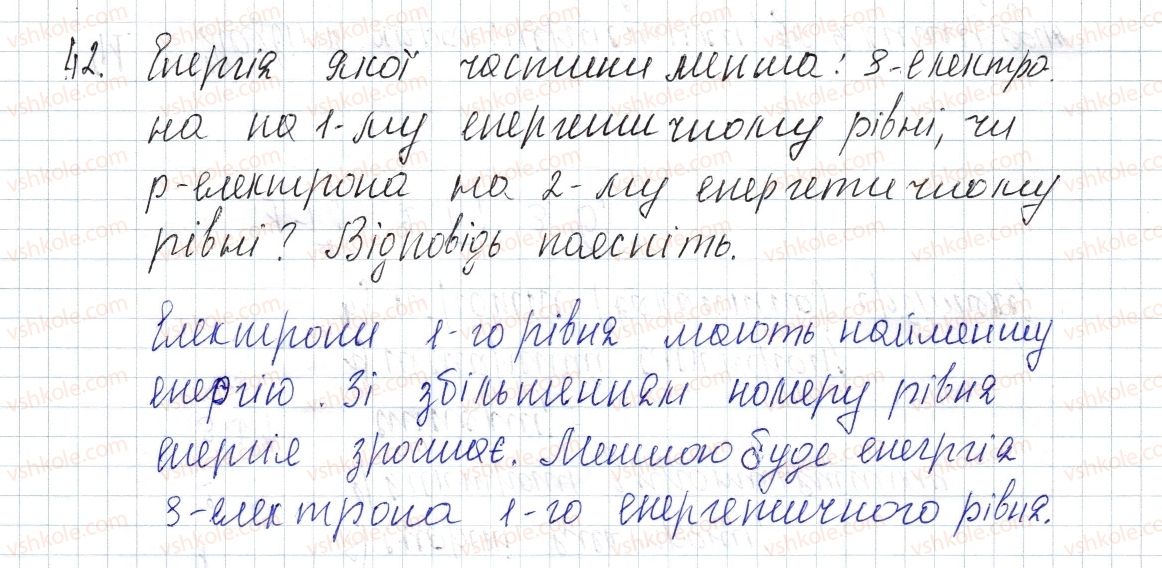 42. Енергія якої частини менша: s-електро-
на на 1-му енергетичному рівні, чи
p-електрона на 2-му енергетичному
рівні? Відповідь поясніть.
Електрони 1-го рівня мають найменшу
енергію. Зі збільшенням номеру рівня
енергія зростає. Меншою буде енергія
s-електрона 1-го енергетичного рівня.